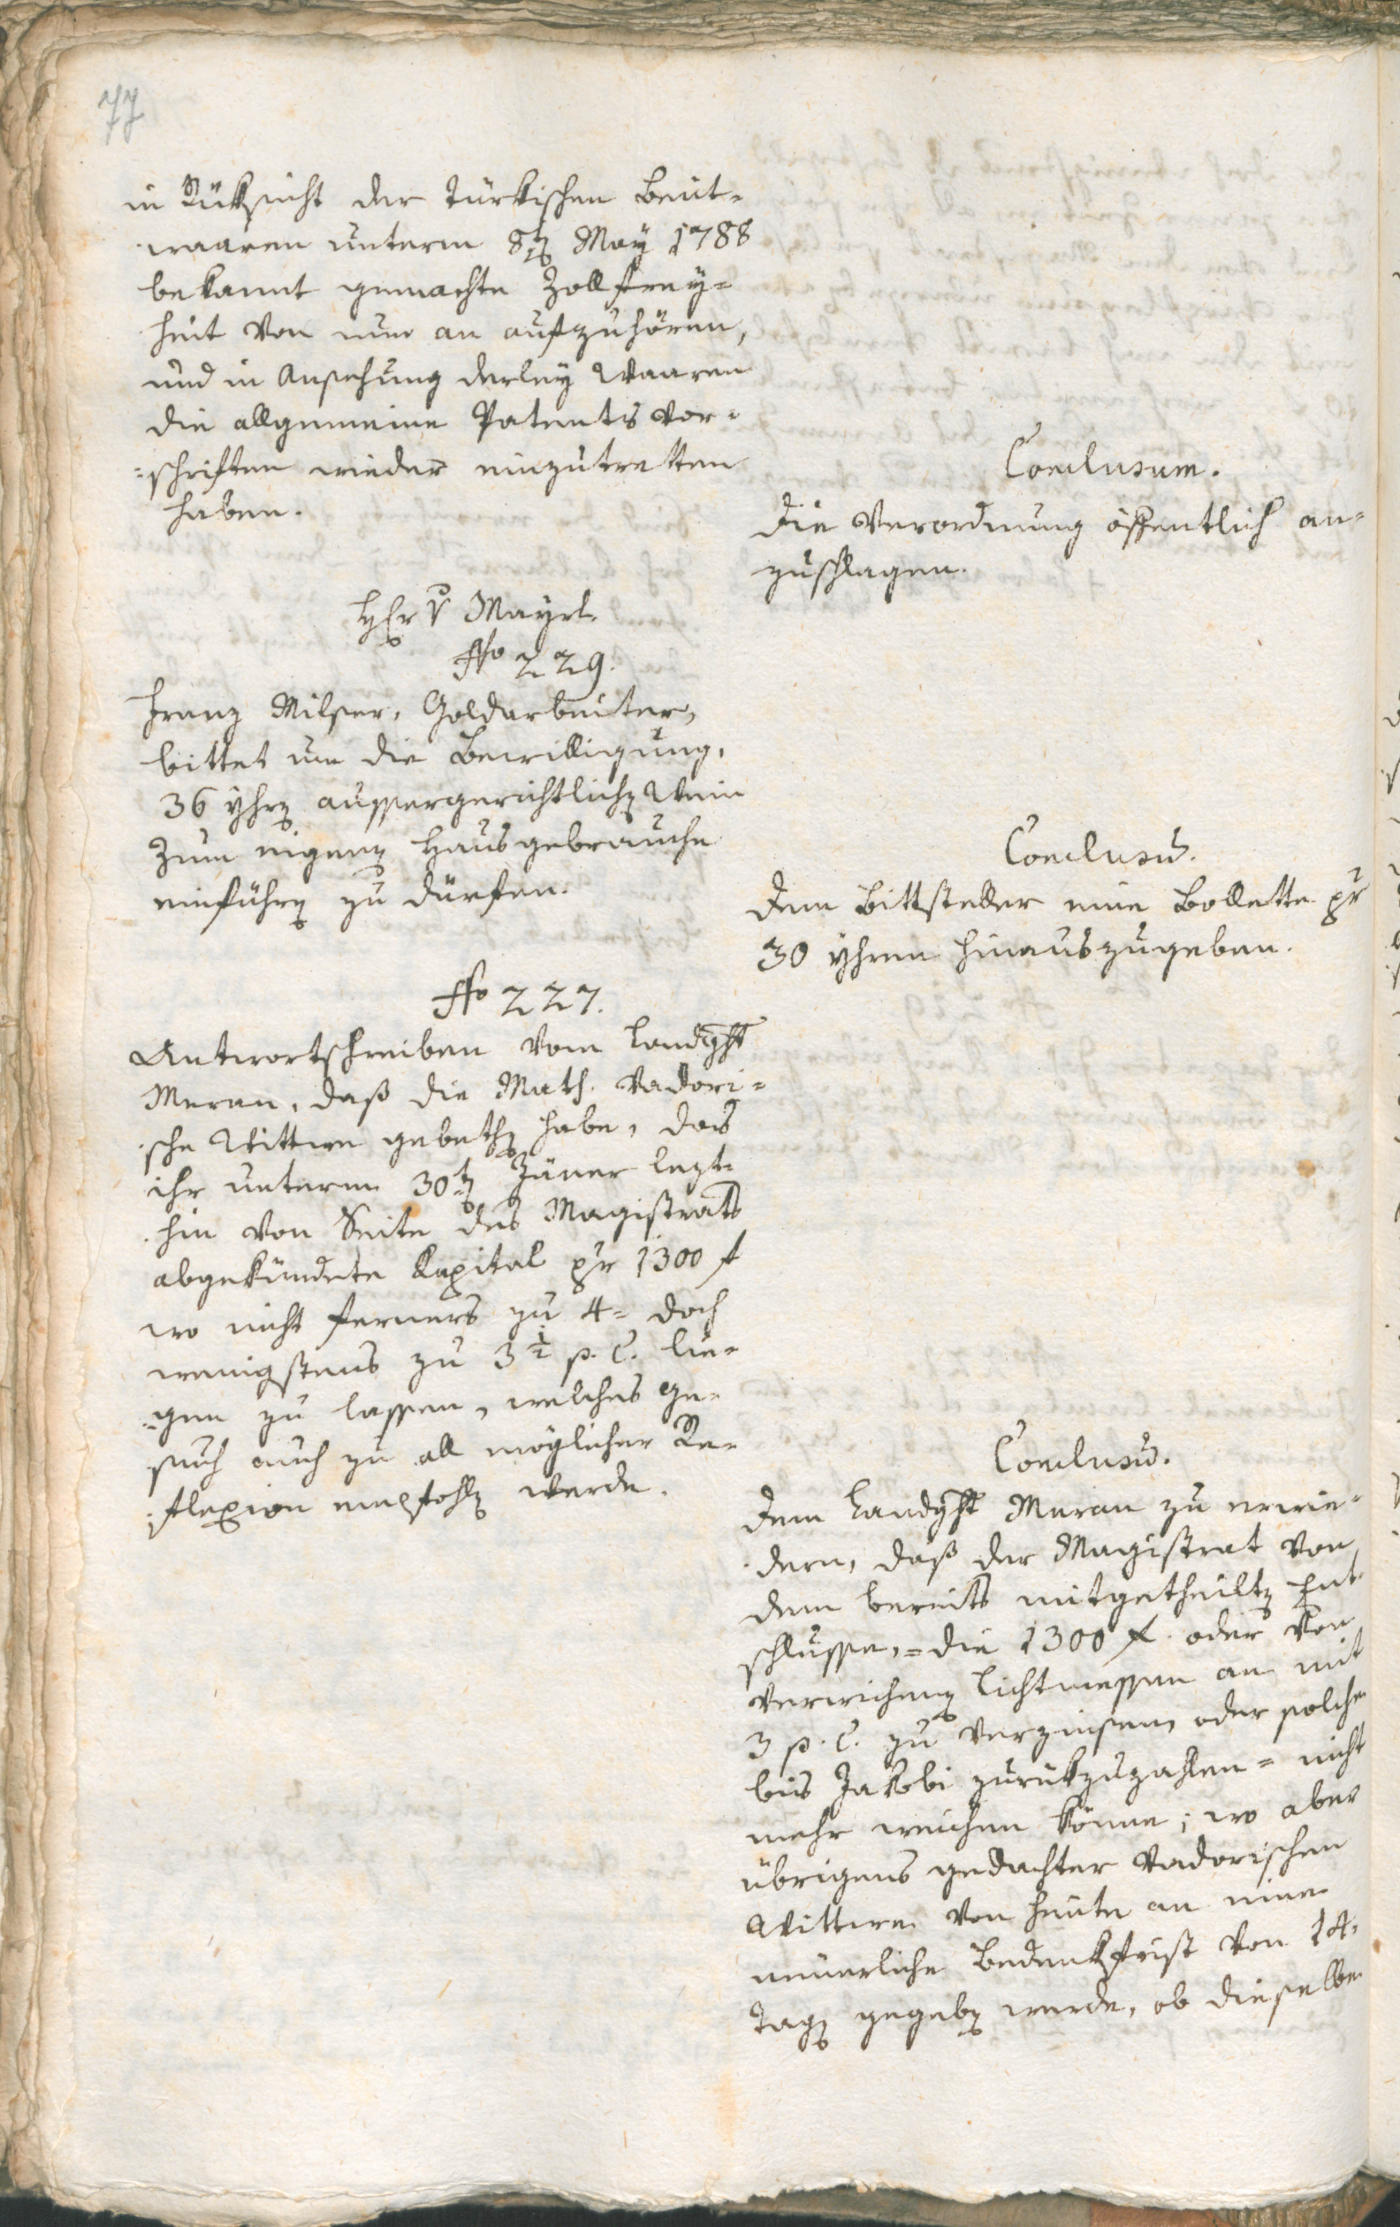 77
in Rüksicht der türkischen Beut-
waaren unterm 8ten May 1788
bekannt gemachte Zollfrey-
heit von nun an aufzuhören,
und in Ansehung derley Waaren
die allgemeine Patents vor-
schriften wieder einzutretten
haben.
Conclusum.
die Verordnung öffentlich an-
zuschlagen.
Hr v Mayrl.
No 229.
Franz Milser, Goldarbeiter,
bittet um die Bewilligung,
36 yhren aussergerichtlichen Wein
zum eigenen Hausgebrauche
einführen zu dürfen.
Conclusum.
dem Bittsteller eine Bollette pr
30 yhren hinauszugeben.
No 227.
Antwortschreiben vom Landght
Meran, daß die Math. Vadori-
sche Wittwe gebethen habe, das
ihr unterm 30ten Jäner lezt-
hin von Seite des Magistrats
abgekündete Kapital pr 1300 f
wo nicht ferners zu 4- doch
wenigstens zu 3 1/2 p. C. lie-
gen zu lassen, welches Ge-
such auch zu all möglicher Re-
flexion empfohlen werde.
Conclusum.
dem Landght Meran zu erwie-
dern, daß der Magistrat von
dem bereits mitgetheilten Ent-
schlusse,= die 1300 f. oder von
verwichenen Lichtmessen an mit
3 p. C. zu verzinsen, oder solche
bis Jakobi zurükzuzahlen = nicht
mehr weichen könne; wo aber
übrigens gedachter Vadorischen
Wittwe von heute an eine
neuerliche Bedenkfrist von 14.
Tagen gegeben werde, ob dieselbe